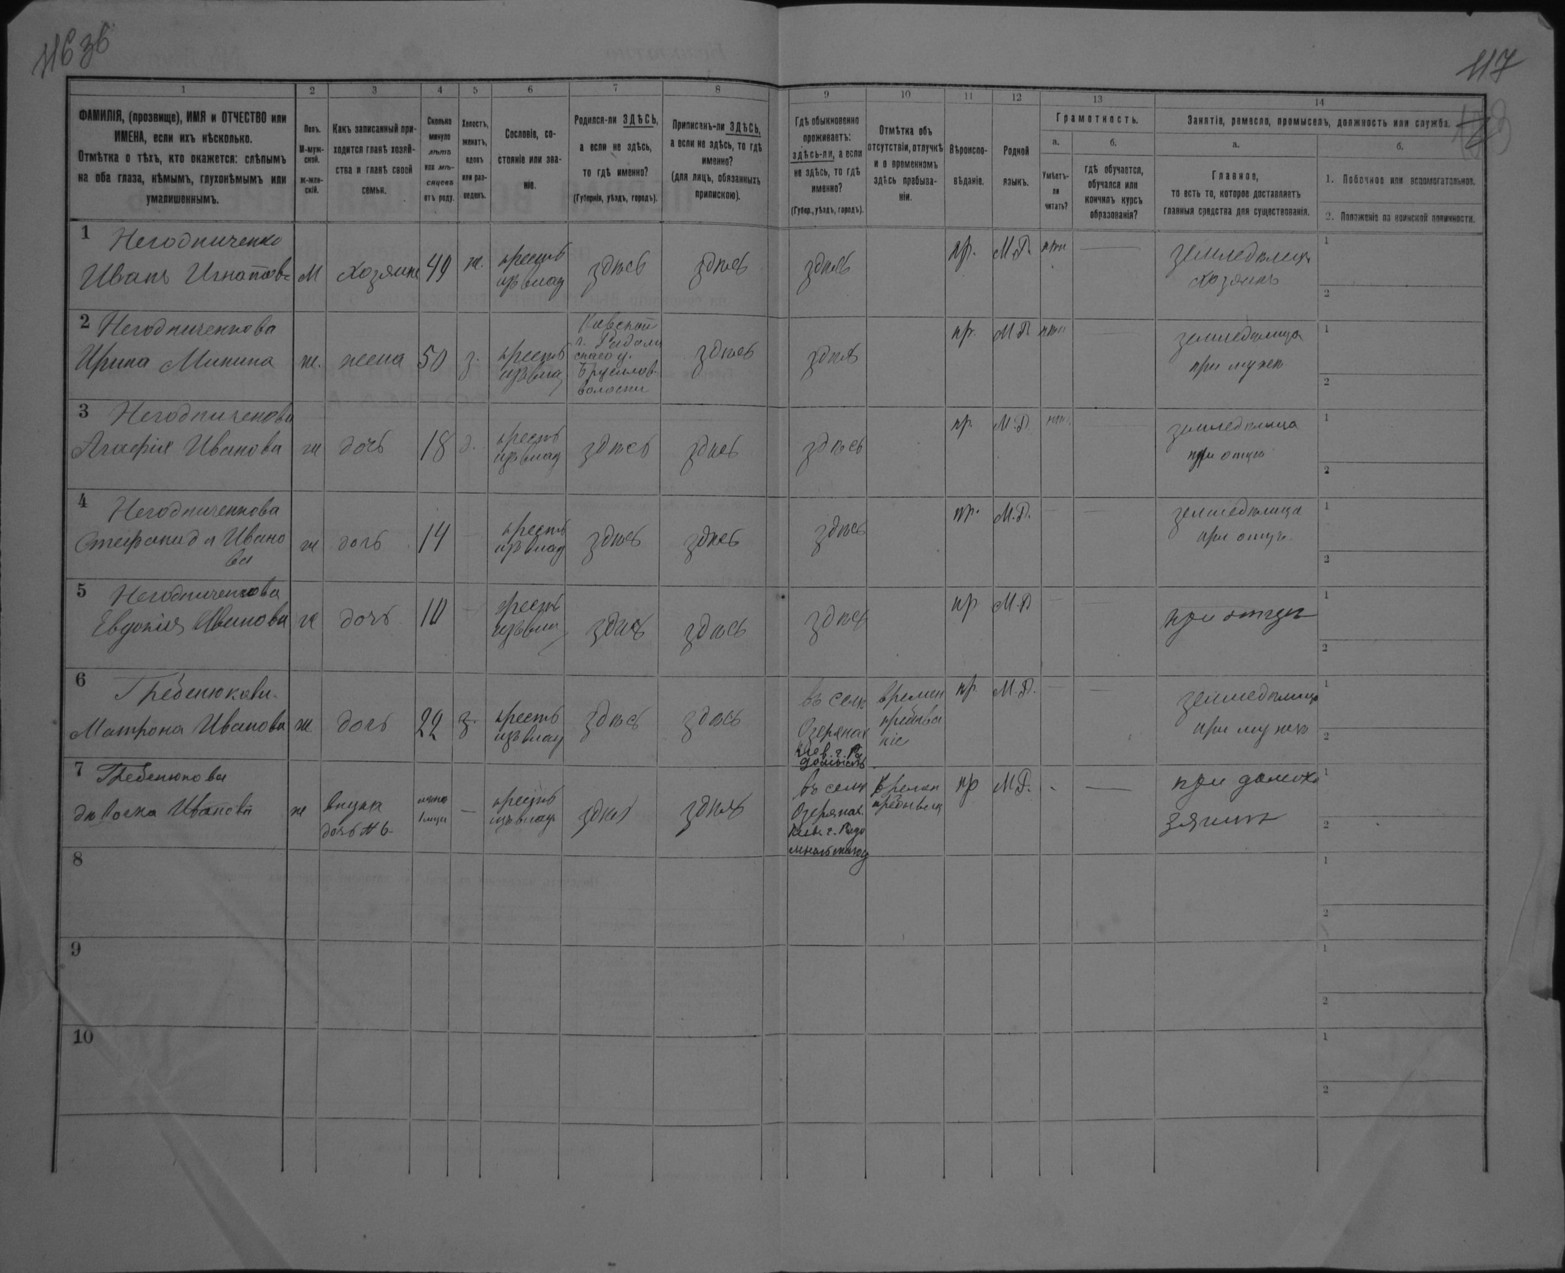 116 об
117
1
2
3
4
5
6
7
8
9
10
11
12
13
14
ФАМИЛІЯ, (прозвище), ИМЯ и ОТЧЕСТВО или
ИМЕНА, если ихъ нѣсколько.
Отмѣтка о тѣхъ, кто окажется: слѣпымъ
на оба глаза, нѣмымъ, глухонѣмымъ или
умалишеннымъ.
Полъ.
М-муж-
ской.
ж-жен-
скій.
Какъ записанный при-
ходится главѣ хозяй-
ства и главѣ своей
семьи.
Сколько
минуло
лѣтъ
или мѣ-
сяцевъ
отъ роду.
Холостъ,
женатъ,
вдовъ
или раз-
веденъ.
Сословіе, со-
стояніе или зва-
ніе.
Родился-ли ЗДѢСЬ,
а если не здѣсь,
то гдѣ именно?
(Губернія, уѣздъ, городъ).
Приписанъ-ли ЗДѢСЬ,
а если не здѣсь, то гдѣ
именно?
(для лицъ, обязанныхъ
припискою).
Гдѣ обыкновенно
проживаетъ:
здѣсь-ли, а если
не здѣсь, то гдѣ
именно?
(Губер., уѣздъ, городъ).
Отмѣтка объ
отсутствіи, отлучкѣ
и о временномъ
здѣсь пребыва-
ніи.
Вѣроиспо-
вѣданіе.
Родной
языкъ.
Грамотность.
а.
Умѣетъ-
ли
читать?
б.
гдѣ обучается,
обучался или
кончилъ курсъ
образованія?
Занятіе, ремесло, промыселъ, должность или служба.
а.
Главное,
то есть то, которое доставляетъ
главныя средства для существованія.
б.
1. Побочное или вспомогательное.
2. Положеніе по воинской повинности.
1
Негодниченко
Иванъ Игнатовъ
М
хозяинъ
49
ж.
крестъ
изъ влад
здѣсь
здѣсь
здѣсь
пр.
М.Р.
нѣтъ
земледѣлецъ
хозяинъ
1
2
2
Негодниченкова
Ирина Минина
ж.
жена
50
з.
крестъ
изъ влад
Кіевской
г. Радомы
скаго у.
Брусилов
волости
здѣсь
здѣсь
пр.
М.Р.
нѣтъ
земледѣлица
при мужѣ
1
2
3
Негодниченкова
Агафія Иванова
ж
дочь
18
д.
крестъ
изъ влад
здѣсь
здѣсь
здѣсь
пр
М.Р.
нѣт.
земледѣлица
при отцѣ
1
2
4
Негодниченкова
Стефанида Ивано
ва
ж
дочь
14
крестъ
изъ влад
здѣсь
здѣсь
здѣсь
пр.
М.Р.
земледѣлица
при отцѣ
1
2
5
Негодниченкова
Евдокія Иванова
ж
дочь
10
крестъ
изъ влад
здѣсь
здѣсь
здѣсь
пр
М.Р
при отцѣ
1
2
6
Гребенюкова
Матрона Иванова
ж
дочь
22
з.
крестъ
изъ влад
здѣсь
здѣсь
въ селѣ
Озерянах
Кіев. г. Ра
домысль
времен
пребыва
ніе
пр
М.Р.
земледѣлица
при мужѣ
1
2
7
Гребенюкова
ж
внучка
дочь № 6
крестъ
изъ влад
здѣсь
здѣсь
въ селѣ
Озерянах
Кіев. г. Радо
времен
пребыван
пр
М.Р.
1
2
8
1
2
9
1
2
10
1
2